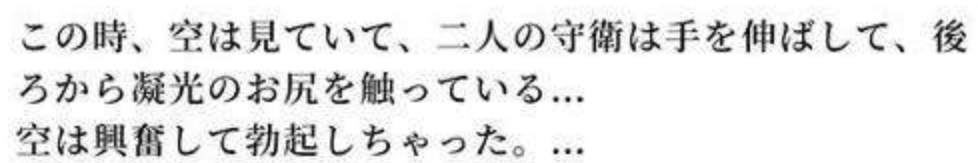 この時、空は見ていて、二人の守衛は手を伸ばして、後
ろから凝光のお尻を触っている...
空は興奮して勃起しちゃった。...